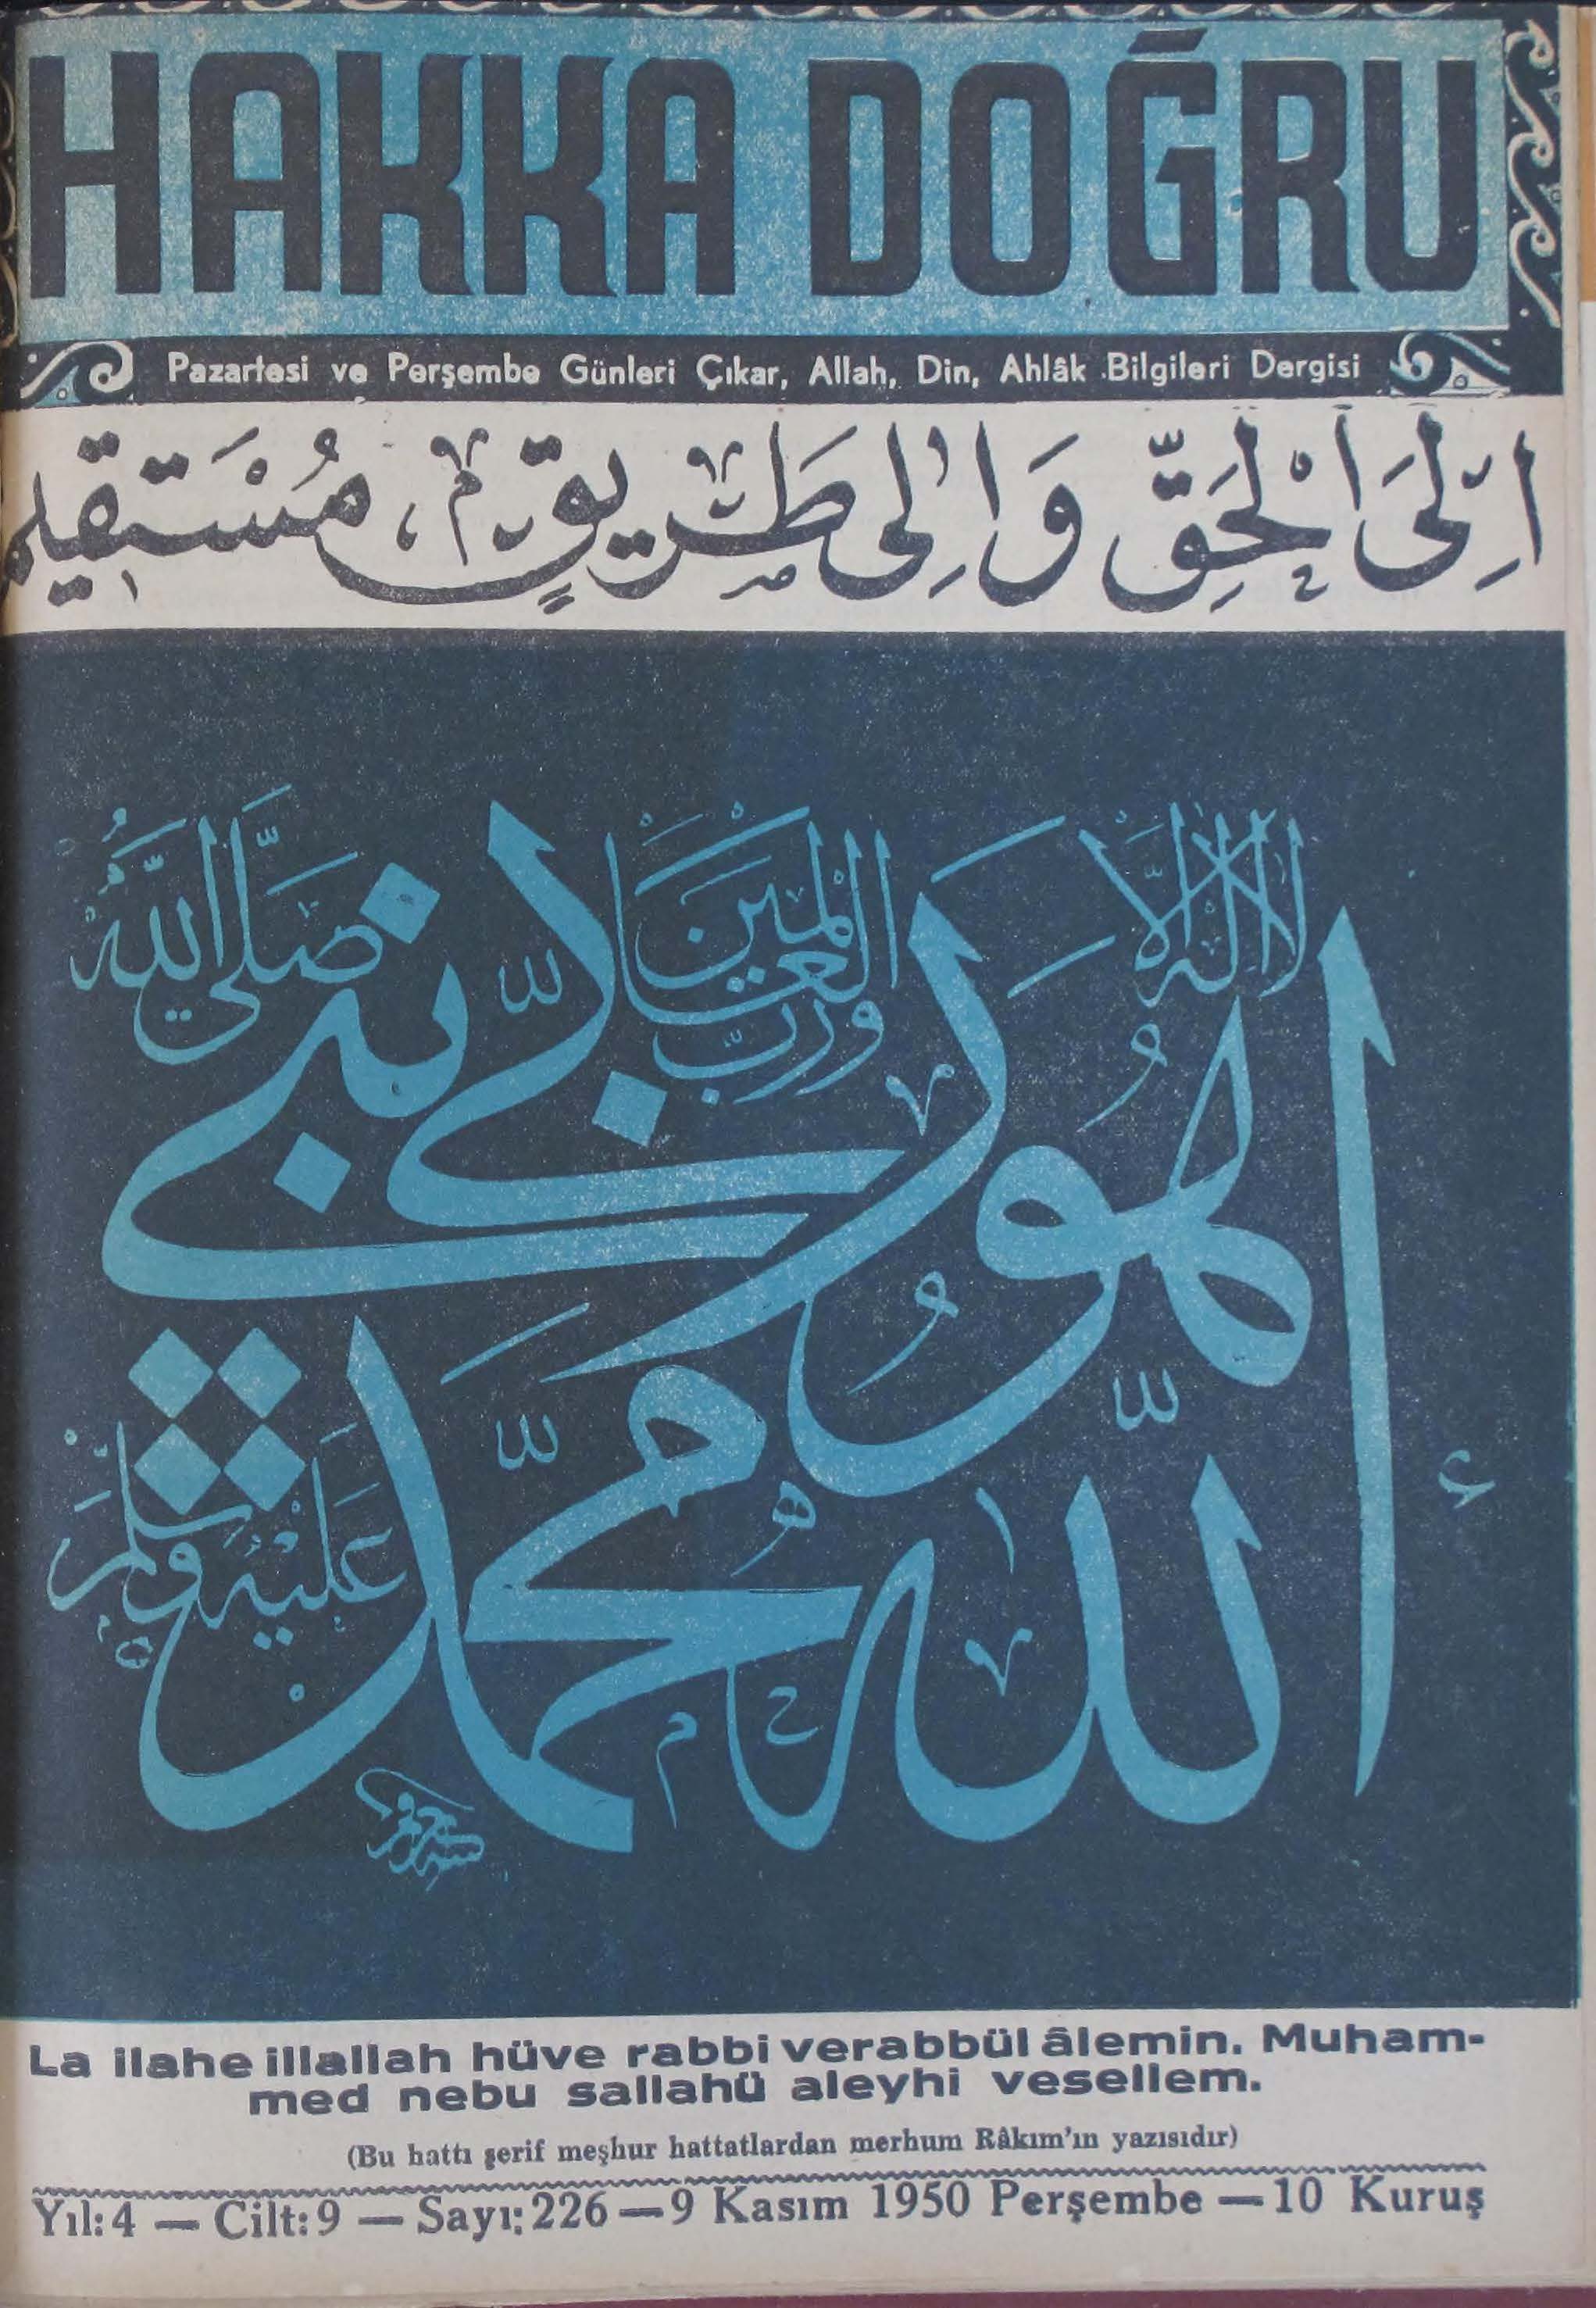 HAKKA DOĞRU
Pazartesi ve Perşembe Günleri Çıkar, Allah, Din, Ahlâk Bilgileri Dergisi
اِلَى الْحَقِّ وَاِلٰى طَرِيقٍ مُسْتَقِيمٍ
لا اله الا
الله
هو
ربى
ورب العالمين
محمد
نبى
صلى الله
عليه وسلم
La ilahe illallah hüve rabbi verabbül âlemin. Muham-
med nebu sallahü aleyhi vesellem.
(Bu hattı şerif meşhur hattatlardan merhum Râkım'ın yazısıdır)
Yıl: 4 — Cilt: 9 — Sayı: 226 — 9 Kasım 1950 Perşembe — 10 Kuruş